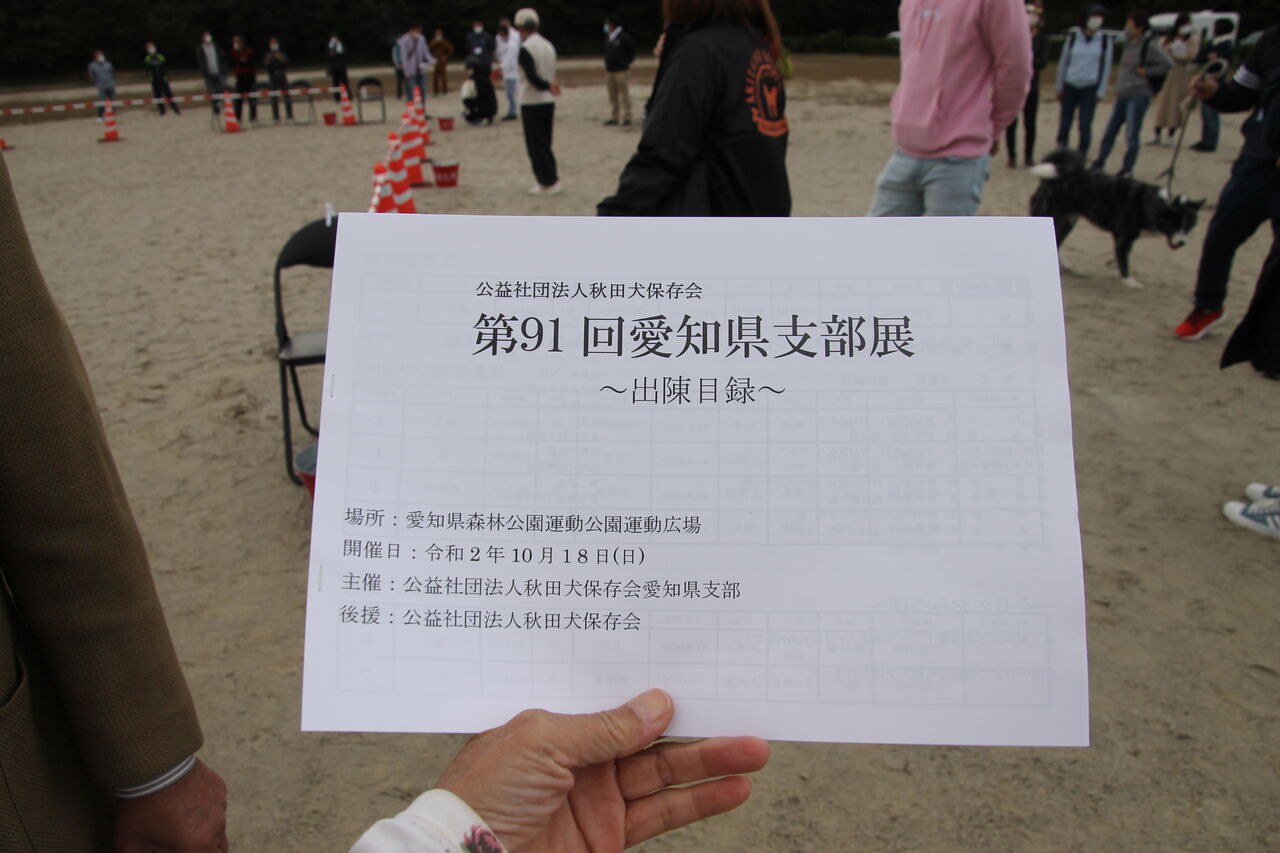 公益社団法人秋田犬保存会
第91回愛知県支部展
～出陳目録～
場所：愛知県森林公園運動公園運動広場
開催日：令和２年１０月１８日(日)
主催：公益社団法人秋田犬保存会愛知県支部
後援：公益社団法人秋田犬保存会